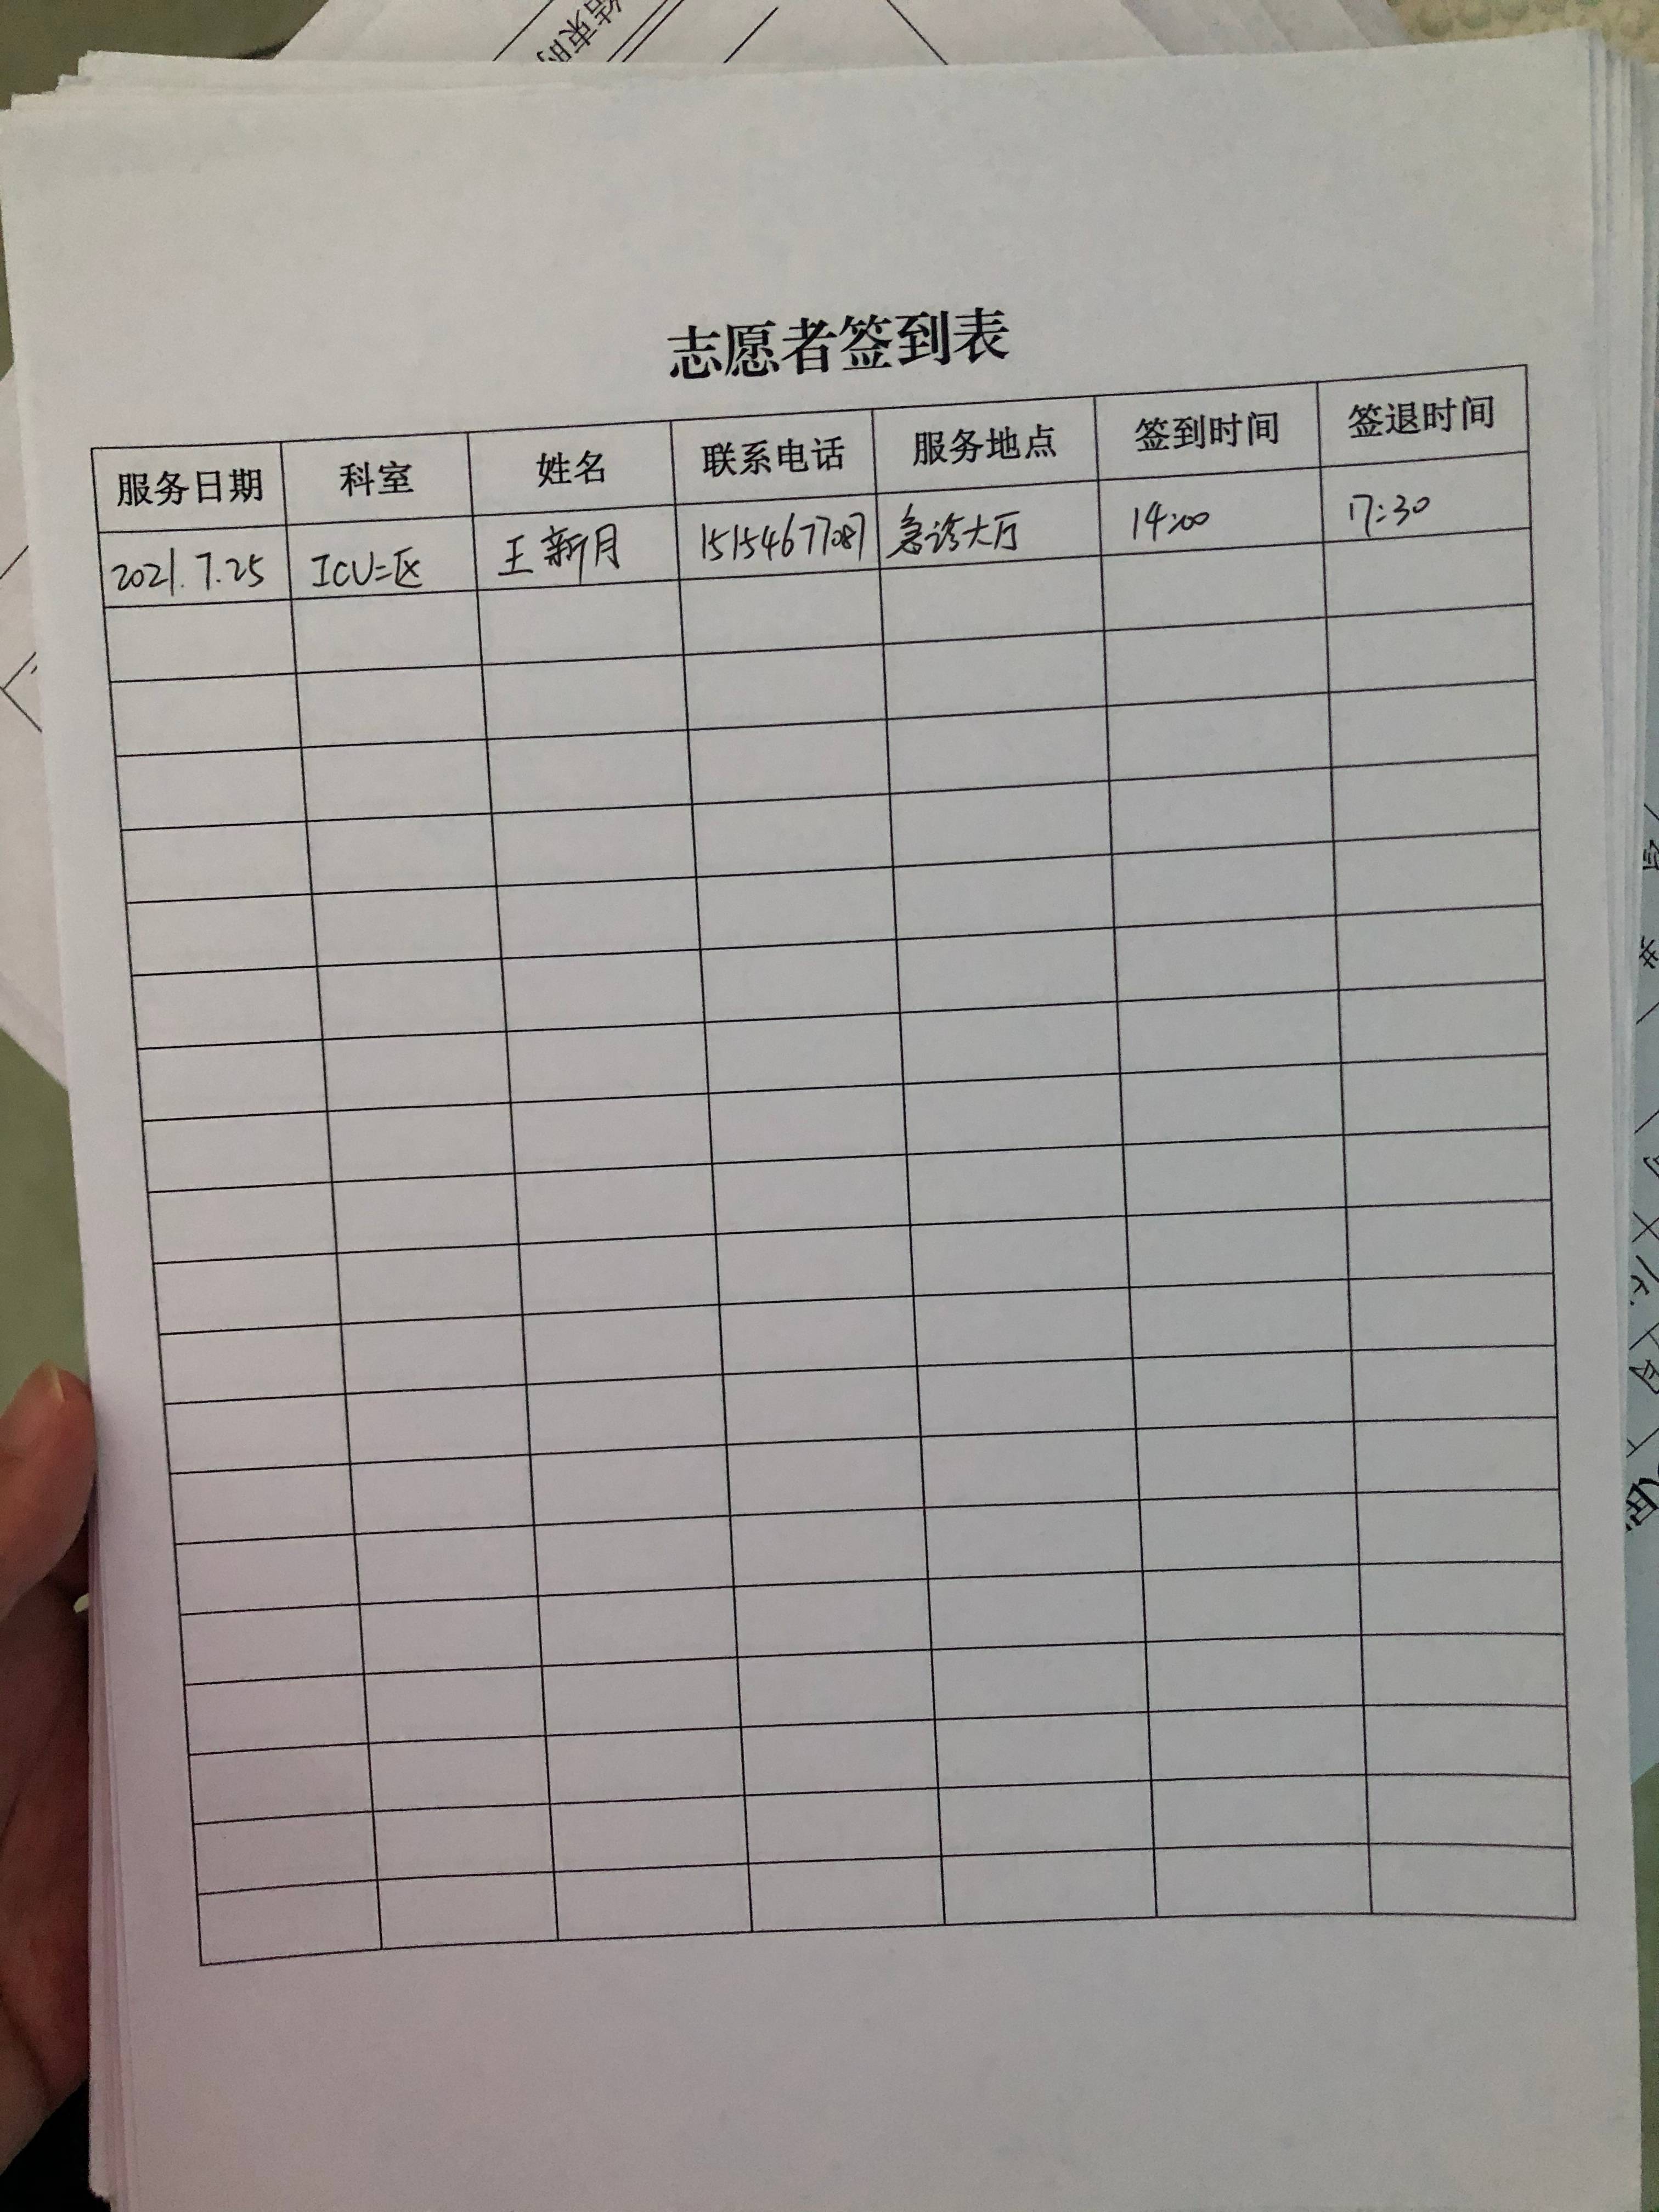 结束时
志愿者签到表
服务日期 科室 姓名 联系电话 服务地点 签到时间 签退时间
2021.7.25 ICU二区 王新月 15154677087 急诊大厅 14:00 17:30